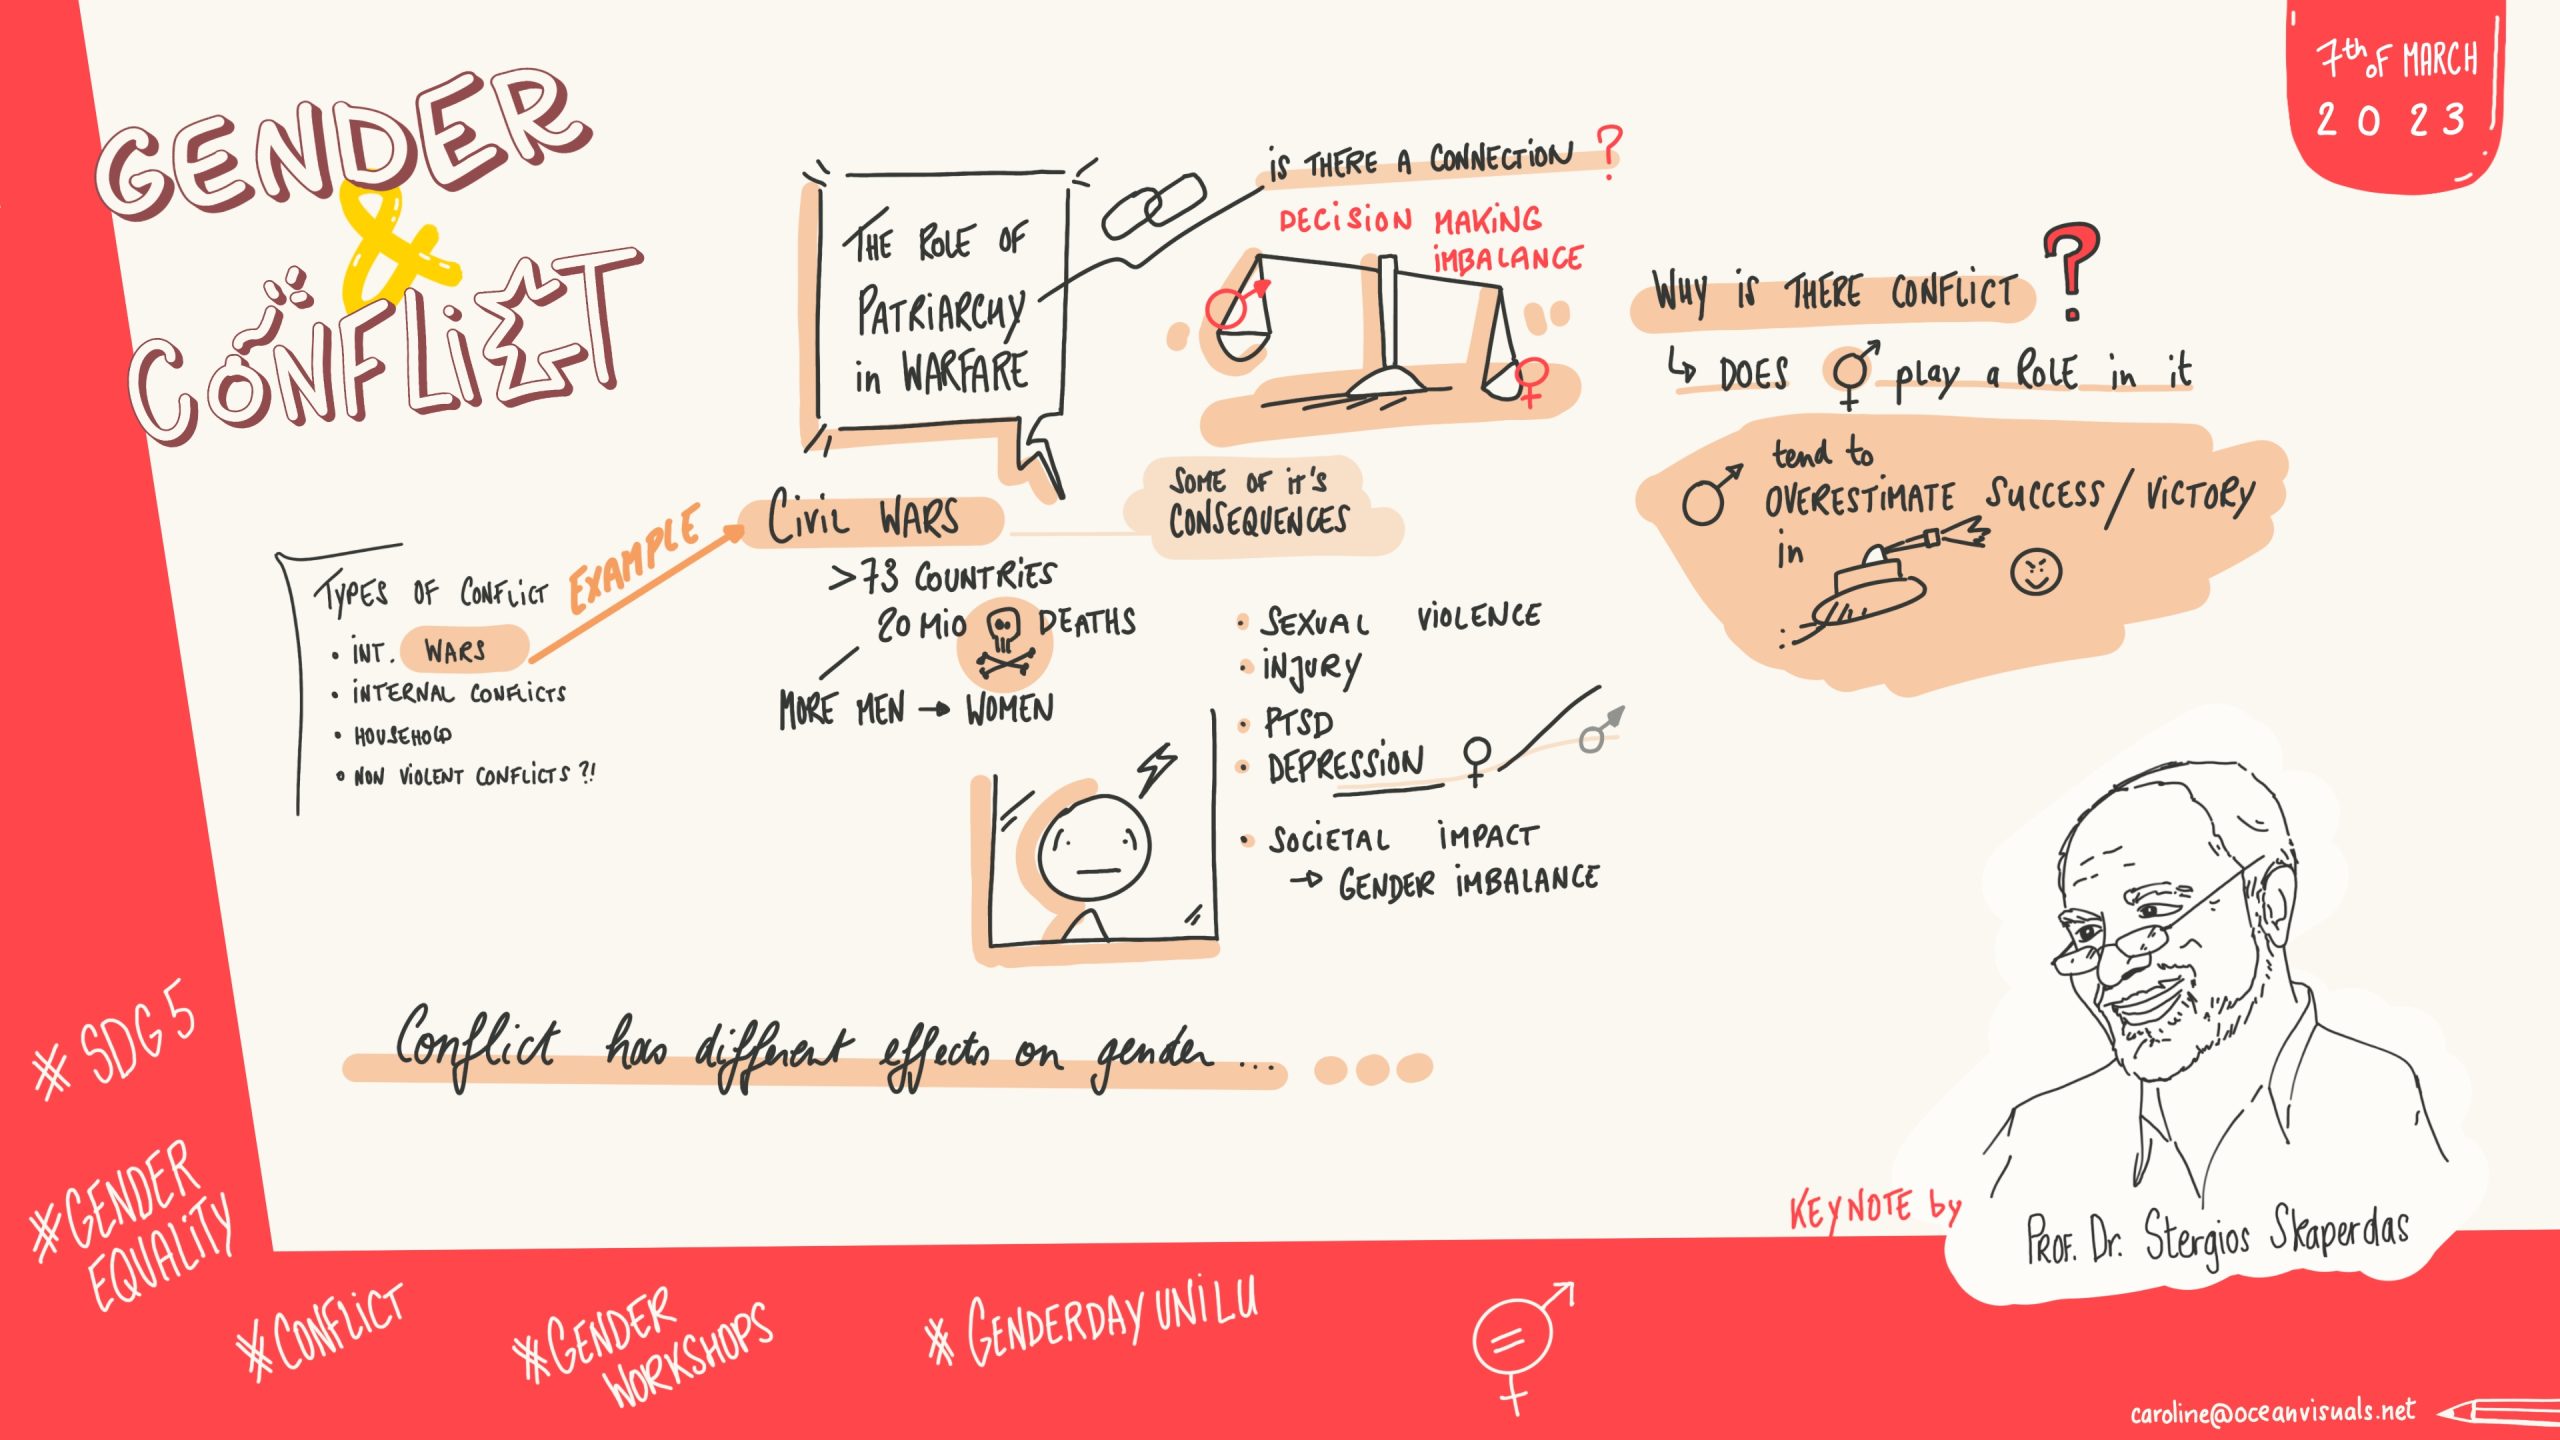 GENDER
&
CONFLICT
7th OF MARCH
2023
THE ROLE OF
PATRIARCHY
in WARFARE
IS THERE A CONNECTION ?
DECISION MAKING
IMBALANCE
WHY IS THERE CONFLICT ?
DOES ⚥ play a ROLE in it
♂ tend to
OVERESTIMATE SUCCESS/VICTORY
in
TYPES OF CONFLICT
• INT. WARS
• INTERNAL CONFLICTS
• HOUSEHOLD
• NON VIOLENT CONFLICTS ?!
EXAMPLE
CIVIL WARS
>73 COUNTRIES
20 MIO DEATHS
MORE MEN → WOMEN
SOME OF IT'S
CONSEQUENCES
• SEXUAL VIOLENCE
• INJURY
• PTSD
• DEPRESSION ♀ ♂
• SOCIETAL IMPACT
→ GENDER IMBALANCE
Conflict has different effects on gender ...
KEYNOTE by
PROF. Dr. Stergios Skaperdas
# SDG 5
#GENDER
EQUALITY
#CONFLICT
#GENDER
WORKSHOPS
# GENDERDAY UNILU
caroline@oceanvisuals.net